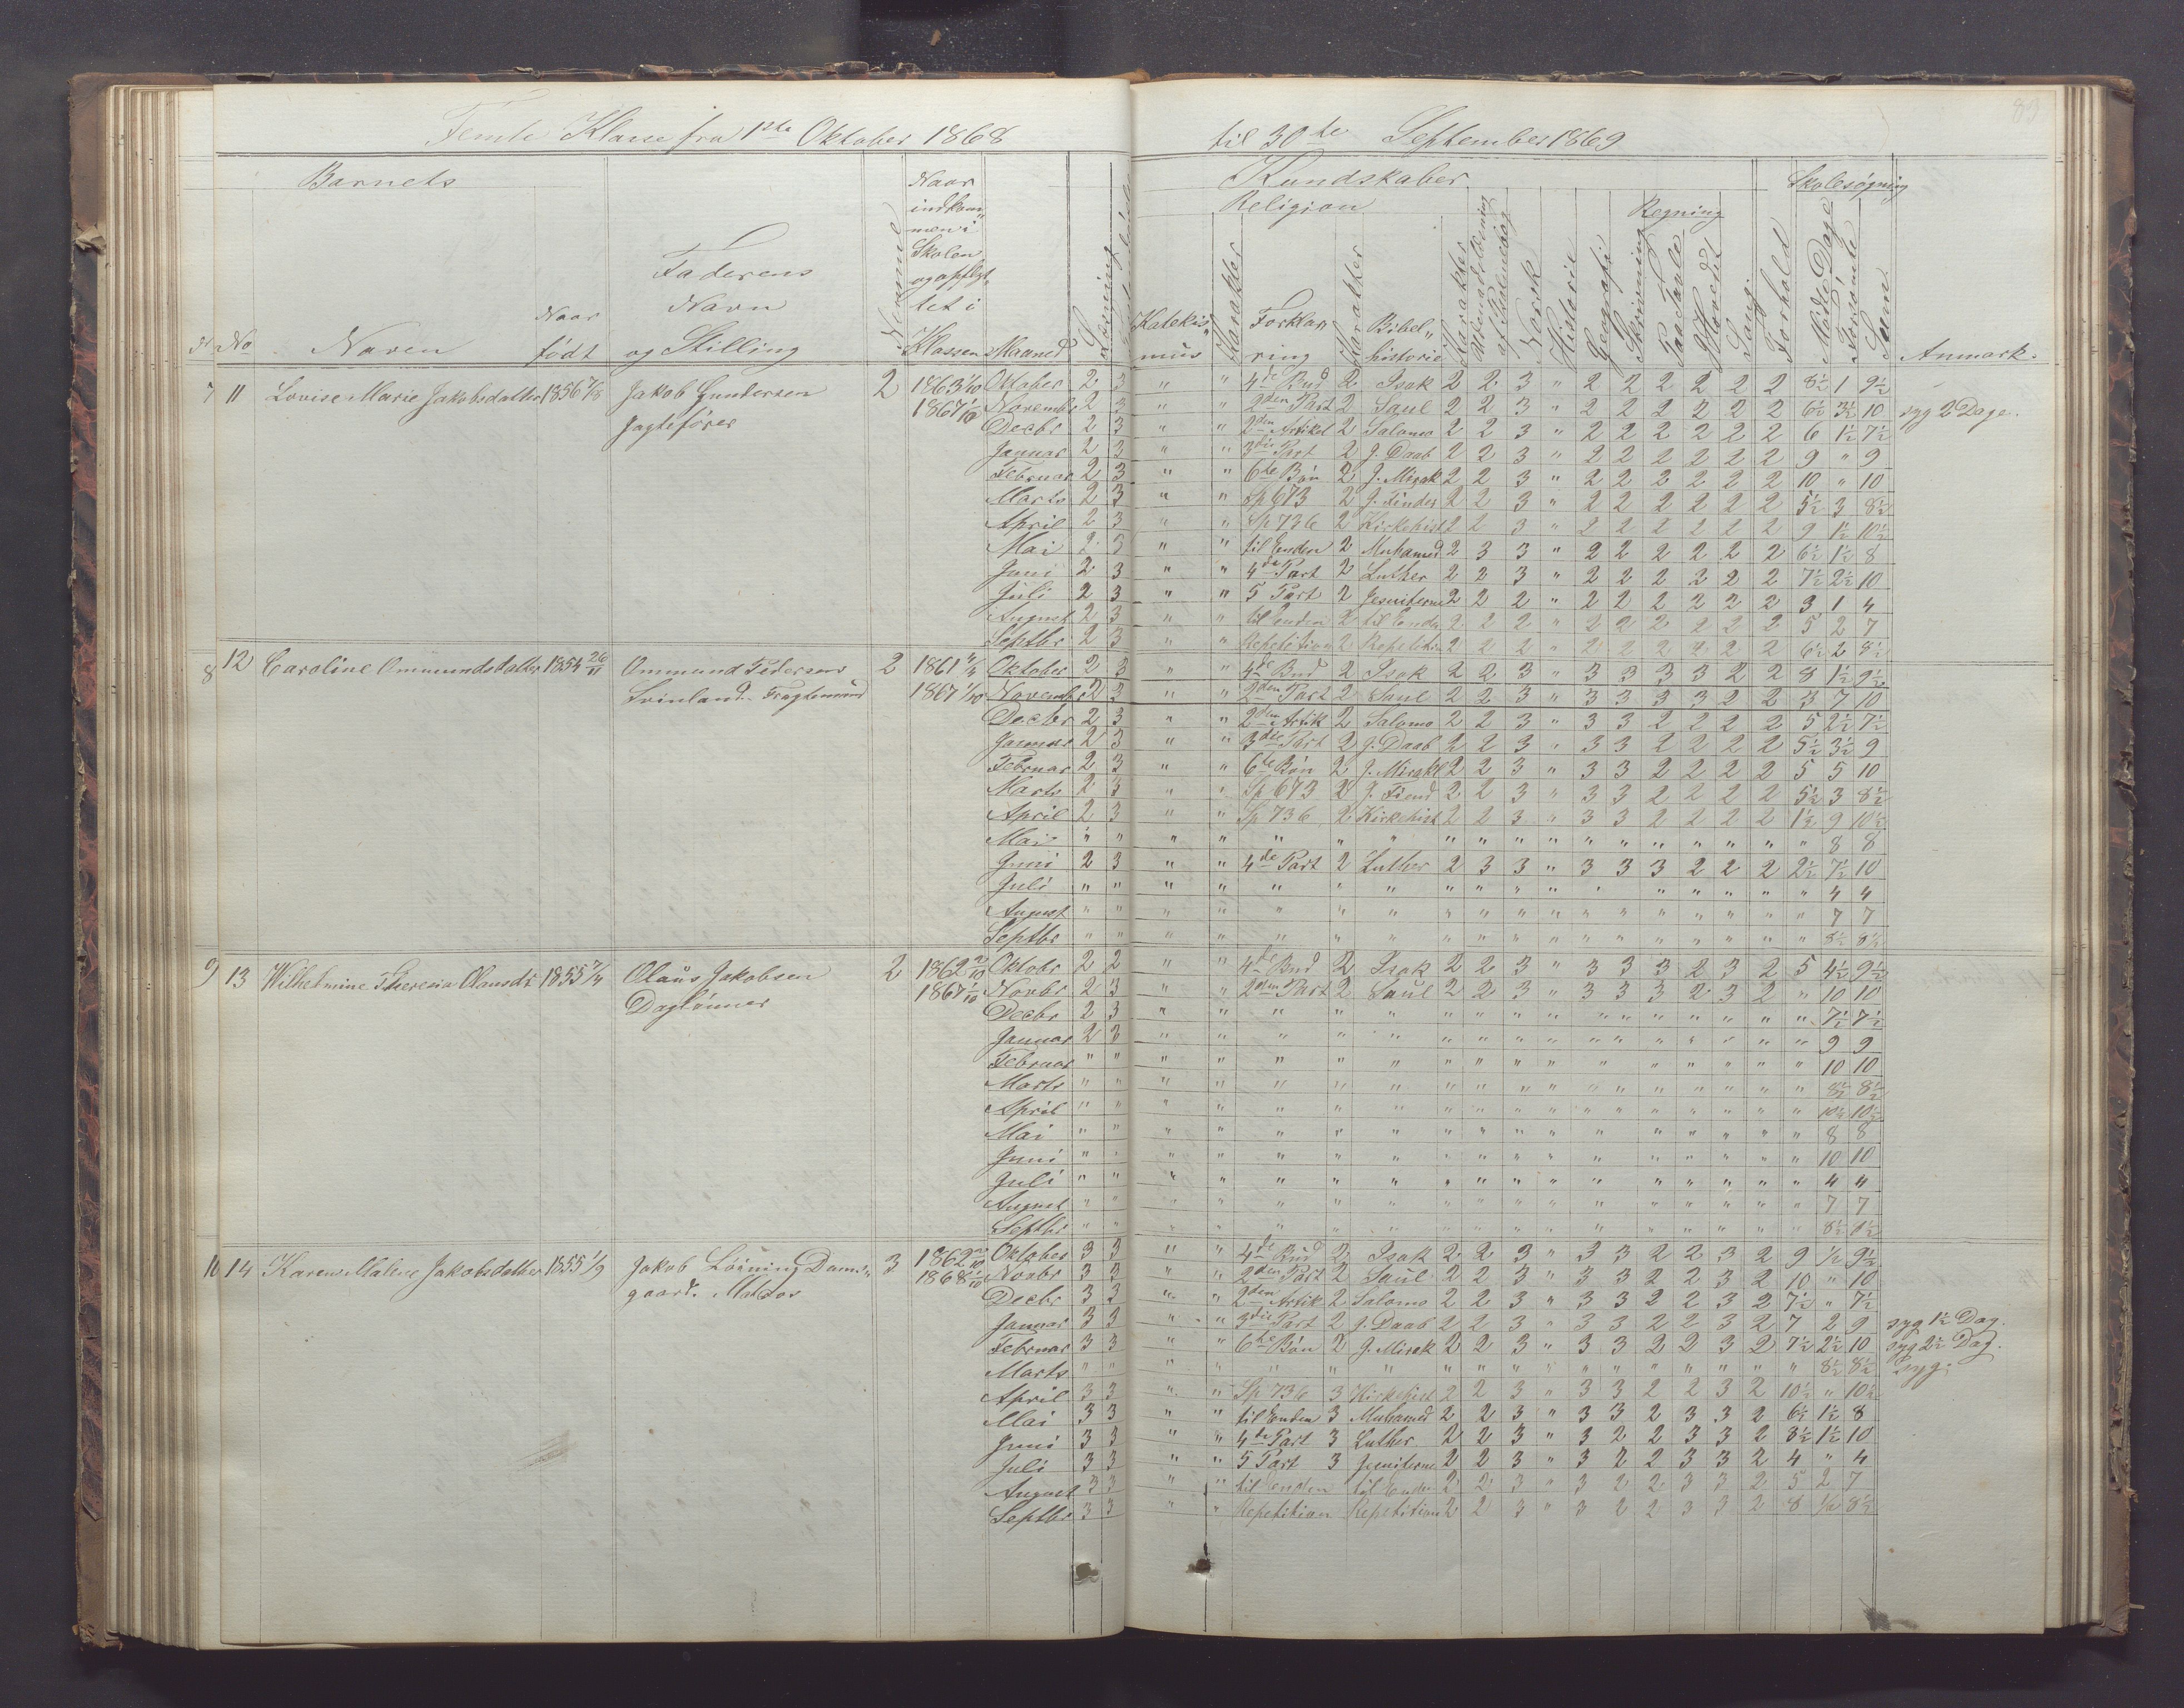 Femte Klasse fra 1ste Oktober 1868 til 30te September 1869
83
Barnets Kundskaber Skolesøgning
Religion Regning
No Navn Naar født Faderens Navn og Stilling Nevenne Naar indkommen i Skolen og opflyttet i Klassen Maaned Læsning Katekismus Karakter Forklaring Karakter Bibelhistorie Karakter Udenadslæsning af Psalmebog Norsk Historie Geografi Skrivning Paa Tavle I Hovedet Sang Forhold Mødte Dage Forsømte Sum Anmærk.
7 11 Lovise Marie Jakobsdatter 1856 7/8 Jakob Gundersen 2 1863 1/10 Oktober 2 3 " " 4de Bud 2 Isak 2 2 3 " 2 2 2 2 2 2 8½ 1 9½
Jagtefører 1867 1/10 Novembr 2 3 " " 2den Part 2 Saul 2 2 3 " 2 2 2 2 2 2 6½ 3½ 10 syg 2 Dage.
Decbr 2 3 " " 2den Artikel 2 Salomo 2 2 3 " 2 2 2 2 2 2 6 1½ 7½
Januar 2 3 " " 3die Part 2 J. Daab 2 2 3 " 2 2 2 2 2 2 9 " 9
Februar 2 3 " " 6te Bøn 2 J. Mirak 2 2 3 " 2 2 2 2 2 2 10 " 10
Marts 2 3 " " Sp 673 2 J. Finder 2 2 3 " 2 2 2 2 2 2 5½ 3 8½
April 2 3 " " Sp 736 2 Kirkehist 2 2 3 " 2 2 2 2 2 2 9 1½ 10½
Mai 2 3 " " til Enden 2 Muhamed 2 3 3 " 2 2 2 2 2 2 6½ 1½ 8
Juni 2 3 " " 4de Part 2 Luther 2 2 3 " 2 2 2 2 2 2 7½ 2½ 10
Juli 2 3 " " 5 Part 2 Jesuiterne 2 2 2 " 2 2 2 2 2 2 3 1 4
August 2 3 " " til Enden 2 til Enden 2 2 2 " 2 2 2 2 2 2 5 2 7
Septbr 2 3 " " Repetition 2 Repetition 2 2 2 " 2 2 2 2 2 2 6½ 2 8½
8 12 Caroline Ommundsdatter 1854 26/11 Ommund Pedersen 2 1861 Oktober 2 3 " " 4de Bud 2 Isak 2 2 3 " 3 3 3 3 2 2 8 1½ 9½
1867 1/10 Novembr 2 3 " " 2den Part 2 Saul 2 2 3 " 3 3 3 3 2 2 3 7 10
Decbr 2 3 " " 2den Artik 2 Salomo 2 2 3 " 3 3 2 2 2 2 5 2½ 7½
Januar 2 3 " " 3die Part 2 J. Daab 2 2 3 " 3 3 2 2 2 2 5½ 3½ 9
Februar 2 3 " " 6te Bøn 2 J. Mirakl 2 2 3 " 3 3 2 2 2 2 5 5 10
Marts 2 3 " " Sp 673 2 J. Fiend 2 2 3 " 3 3 2 2 2 2 5½ 3 8½
April 2 3 " " Sp 736 2 Kirkehist 2 2 3 " 3 3 2 2 2 2 1½ 9 10½
Mai " " " " " " " " " " " " " " " " " " 8 8
Juni 2 3 " " 4de Part 2 Luther 2 3 3 " 3 3 3 2 2 2 2½ 7½ 10
Juli " " " " " " " " " " " " " " " " " 4 4
August " " " " " " " " " " " " " " " " " " 7 7
Septbr " " " " " " " " " " " " " " " " " " 8½ 8½
9 13 Wilhelmine Theresia Olausdt 1855 7/4 Olaus Jakobsen 2 1862 2/10 Oktobr 2 2 " " 4de Bud 2 Isak 2 2 3 " 3 3 3 2 3 2 5 4½ 9½
Daglønner 1867 1/10 Novbr 2 3 " " 2den Part 2 Saul 2 2 3 " 3 3 3 2 3 2 " 10 10
Decbr 2 3 " " " " " " " " " " " " " " " " 7½ 7½
Januar 2 3 " " " " " " " " " " " " " " " " 9 9
Februar " " " " " " " " " " " " " " " " " 10 10
Marts " " " " " " " " " " " " " " " " " " 8½ 8½
April " " " " " " " " " " " " " " " " " " 10½ 10½
Mai " " " " " " " " " " " " " " " " " 8 8
Juni " " " " " " " " " " " " " " " " " 10 10
Juli " " " " " " " " " " " " " " " " " 4 4
August " " " " " " " " " " " " " " " " " 7 7
Septbr " " " " " " " " " " " " " " " " " 8½ 8½
10 14 Karen Malene Jakobsdatter 1855 1/9 Jakob Løining Dams- 3 1862 Oktober 3 3 " " 4de Bud 2 Isak 2 2 3 " 3 3 2 2 3 2 9 ½ 9½
gaard. Matros 1868 1/10 Novbr 3 3 " " 2den Part 2 Saul 2 2 3 " 3 3 2 2 3 2 10 " 10
Decbr 3 3 " " 2den Artik 2 Salomo 2 2 3 " 3 3 2 2 3 2 7½ " 7½
Januar 3 3 " " 3die Part 2 J. Daab 2 2 3 " 3 3 2 2 3 2 7 2 9 syg 1½ Dag.
Februar 3 3 " " 6te Bøn 2 J. Mirak 2 2 3 " 3 3 2 2 3 2 7½ 2½ 10 syg 2½ Dag.
Marts " " " " " " " " " " " " " " " " " " 8½ 8½ syg.
April 3 3 " " Sp 736 3 Kirkehist 2 2 3 " 3 3 2 2 3 2 10½ " 10½
Mai 3 3 " " til Enden 3 Muhamed 2 2 3 " 3 3 2 3 3 2 6½ 1½ 8
Juni 3 3 " " 4de Part 3 Luther 2 2 3 " 3 2 2 3 3 2 8½ 1½ 10
Juli 3 3 " " 5 Part 3 Jesuiterne 2 2 3 " 3 2 2 3 3 2 4 " 4
August 3 3 " " til Enden til Enden 2 2 3 " 3 2 2 3 3 2 5 2 7
Septbr 3 3 " " Repetition Repetition 2 2 3 " 3 2 2 3 3 2 8 ½ 8½